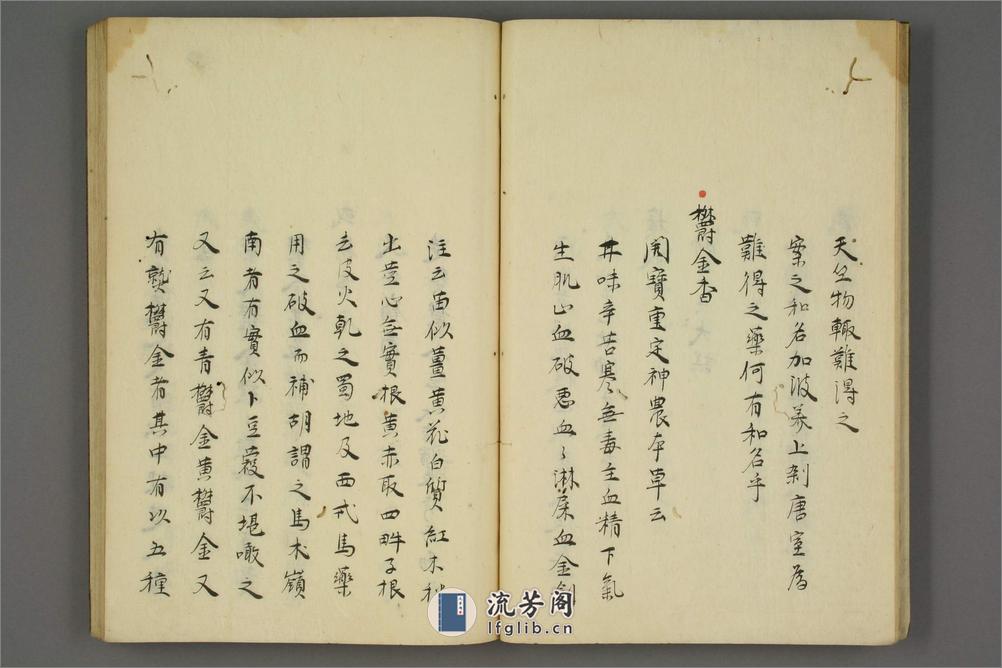 天生物輙難得之
案之和名加波養上剁唐室為
難得之藥何有和名乎
欝金香
開寶重定神農本草云
味辛苦寒無毒主血精下氣
生肌止血破惡血〻淋尿血金
注云苗似薑黃花白質紅末秋
出莖心無實根黃赤取四畔子根
去皮火乾之蜀地及西戎馬藥
用之破血而補胡謂之馬朮嶺
南者有實似小豆蔲不堪噉之
又云又有青欝金黃欝金又
有欝金者其中有以五種
流芳阁
lfglib.cn